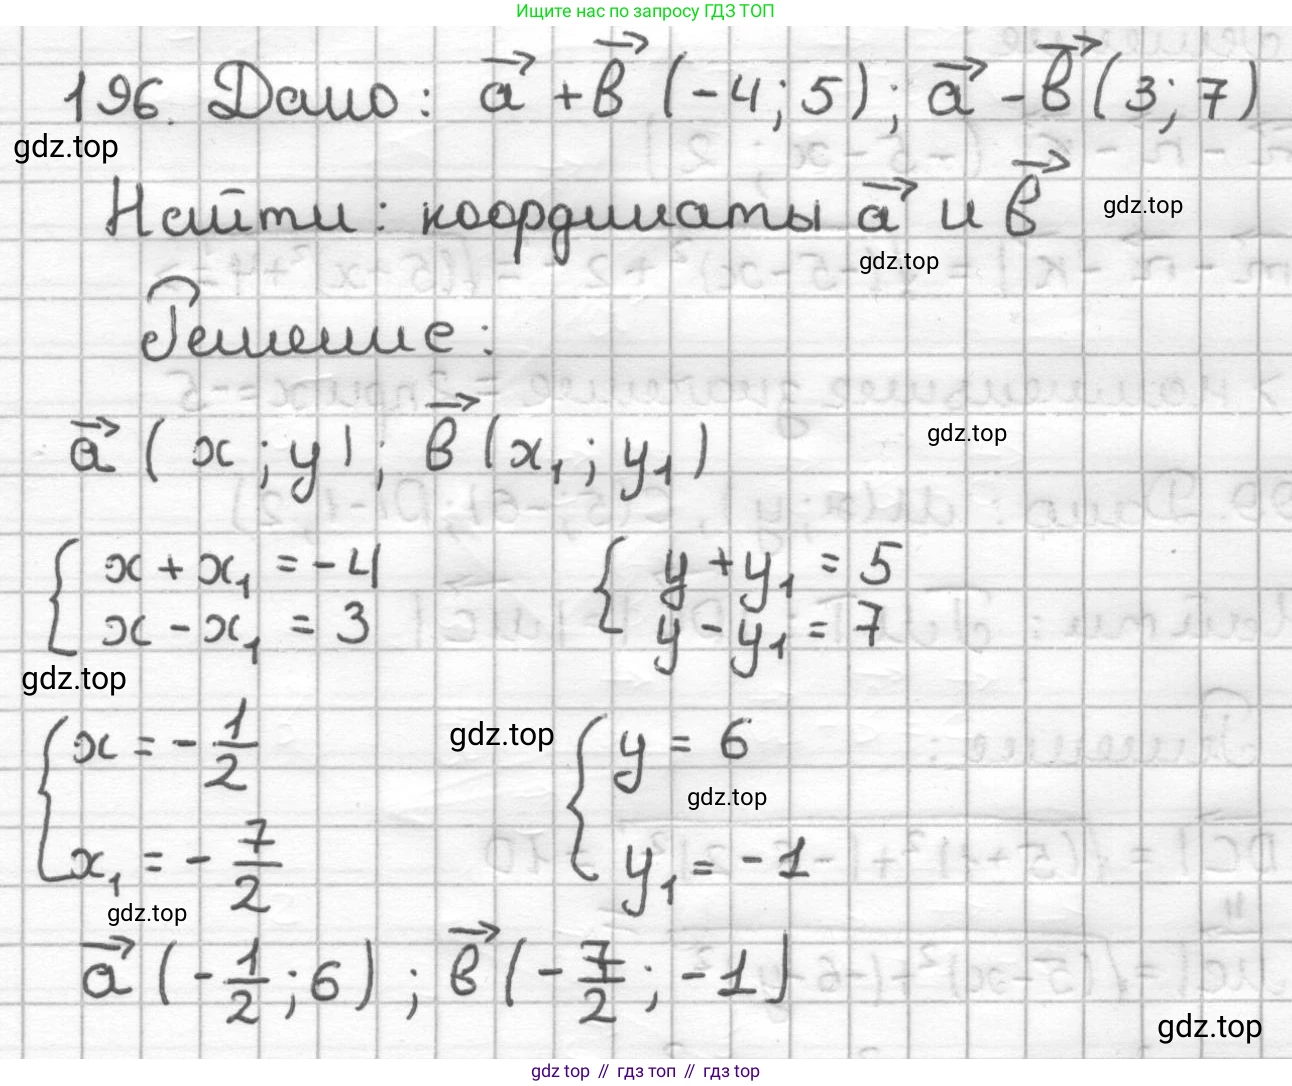 Ищите нас по запросу ГДЗ ТОП
196. Дано: a⃗ + b⃗ (-4; 5); a⃗ - b⃗ (3; 7)
gdz.top
Найти: координаты a⃗ и b⃗
gdz.top
gdz.top
Решение:
a⃗ (x; y); b⃗ (x₁; y₁)
gdz.top
{ x + x₁ = -4 { y + y₁ = 5
x - x₁ = 3 y - y₁ = 7
gdz.top
{ x = -1/2 { y = 6
gdz.top
gdz.top
x₁ = -7/2 y₁ = -1
gdz.top
a⃗ (-1/2; 6); b⃗ (-7/2; -1)
gdz.top
gdz top // гдз топ // гдз top